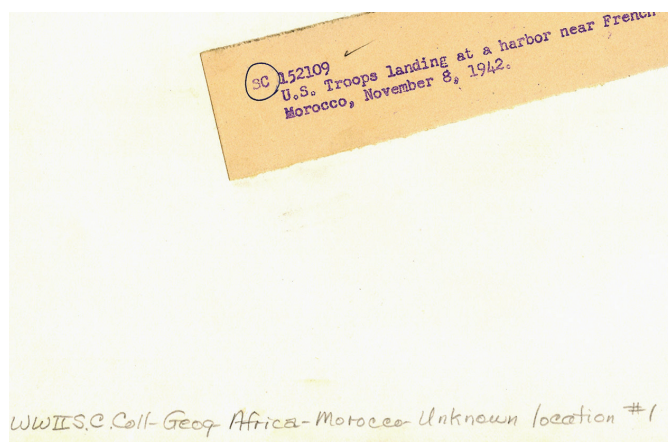 SC 152109
U.S. Troops landing at a harbor near French
Morocco, November 8, 1942.
WWII S.C. Coll-Geog Africa-Morocco Unknown location #1